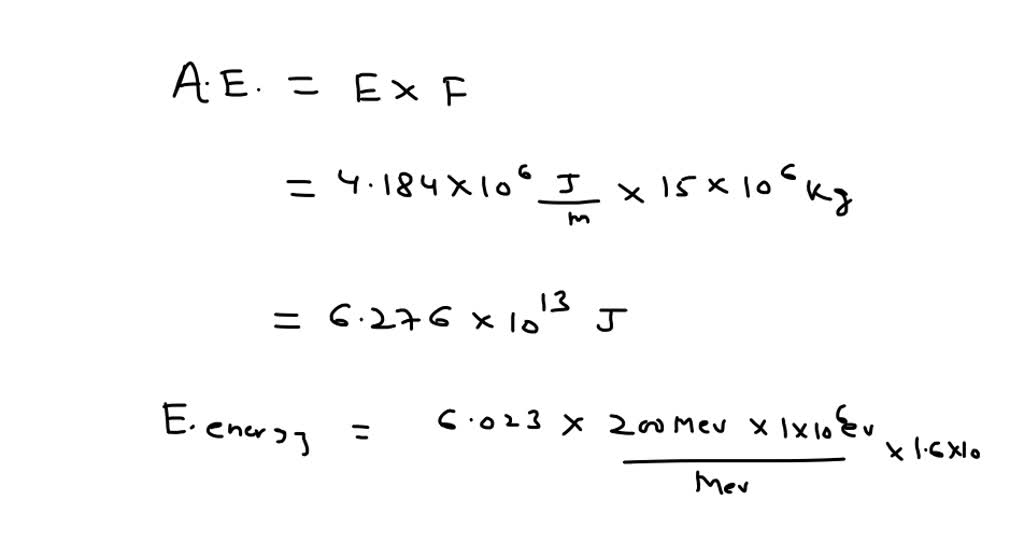 A.E. = E × F
= 4.184 × 10⁶ J/m × 15 × 10⁶ Kg
= 6.276 × 10¹³ J
E. energy = 6.023 × 200 Mev × 1 × 10⁶ ev / Mev × 1.6 × 10